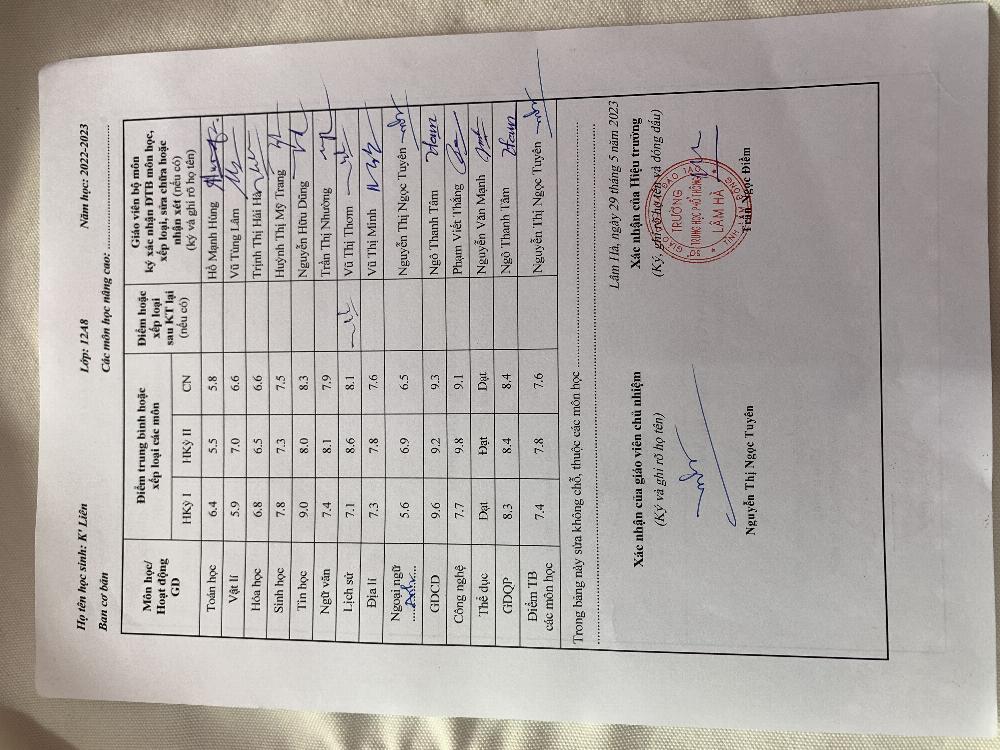 Họ tên học sinh: K' Liên Lớp: 12A8 Năm học: 2022-2023
Ban cơ bản Các môn học nâng cao: ......................
Môn học/ Hoạt động GD | Điểm trung bình hoặc xếp loại các môn | Điểm hoặc xếp loại sau KT lại (nếu có) | Giáo viên bộ môn ký xác nhận ĐTB môn học, xếp loại, sửa chữa hoặc nhận xét (nếu có) (ký và ghi rõ họ tên)
HKỳ I | HKỳ II | CN
Toán học | 6.4 | 5.5 | 5.8 | Hồ Mạnh Hùng
Vật lí | 5.9 | 7.0 | 6.6 | Vũ Tùng Lâm
Hóa học | 6.8 | 6.5 | 6.6 | Trịnh Thị Hải Hà
Sinh học | 7.8 | 7.3 | 7.5 | Huỳnh Thị Mỹ Trang
Tin học | 9.0 | 8.0 | 8.3 | Nguyễn Hữu Dũng
Ngữ văn | 7.4 | 8.1 | 7.9 | Trần Thị Nhường
Lịch sử | 7.1 | 8.6 | 8.1 | Vũ Thị Thơm
Địa lí | 7.3 | 7.8 | 7.6 | Vũ Thị Minh
Ngoại ngữ | 5.6 | 6.9 | 6.5 | Nguyễn Thị Ngọc Tuyên
GDCD | 9.6 | 9.2 | 9.3 | Ngô Thanh Tâm
Công nghệ | 7.7 | 9.8 | 9.1 | Phạm Viết Thắng
Thể dục | Đạt | Đạt | Đạt | Nguyễn Văn Mạnh
GDQP | 8.3 | 8.4 | 8.4 | Ngô Thanh Tâm
Điểm TB các môn học | 7.4 | 7.8 | 7.6 | Nguyễn Thị Ngọc Tuyên
Trong bảng này sửa không chỗ, thuộc các môn học ......................
Lâm Hà, ngày 29 tháng 5 năm 2023
Xác nhận của giáo viên chủ nhiệm
(Ký và ghi rõ họ tên)
Nguyễn Thị Ngọc Tuyên
Xác nhận của Hiệu trưởng
(Ký, ghi rõ họ tên và đóng dấu)
TRƯỜNG
TRUNG HỌC PHỔ THÔNG
LÂM HÀ
Trần Ngọc Điềm